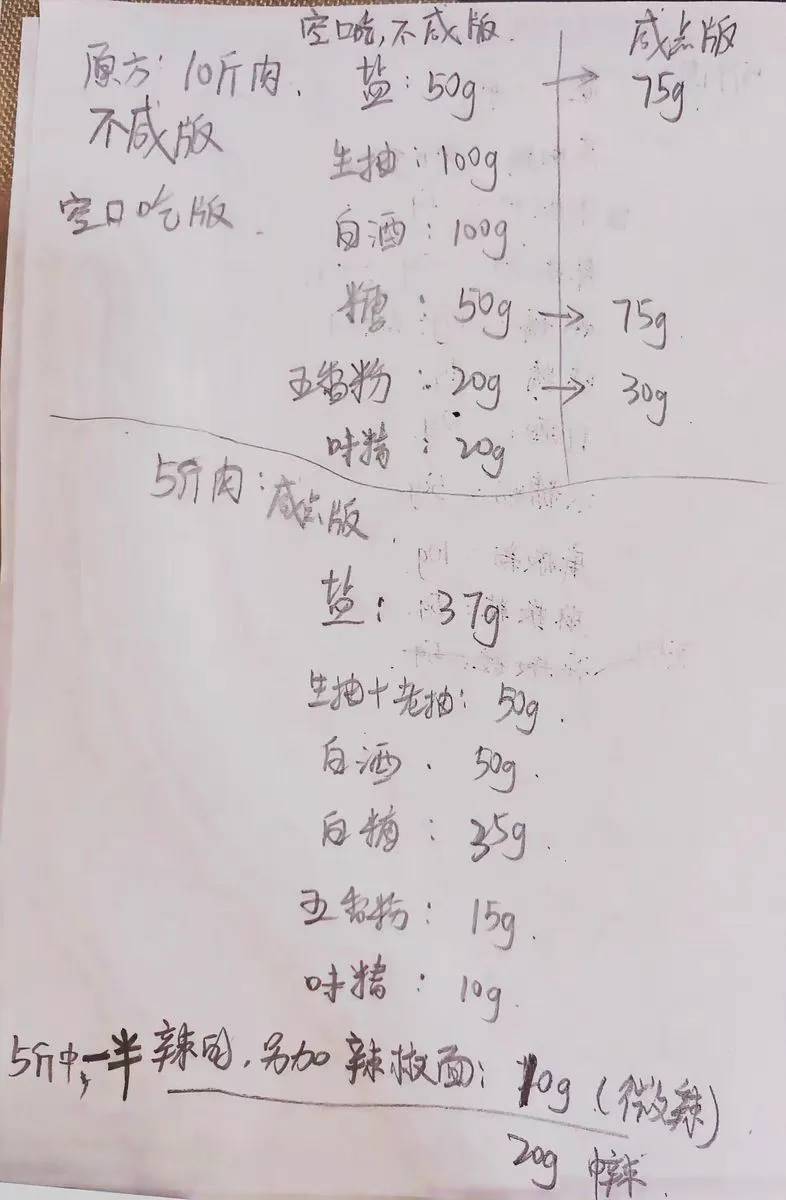 空口吃,不咸版. 咸点版
原方: 10斤肉. 盐: 50g → 75g
不咸版 生抽: 100g
空口吃版. 白酒: 100g
糖: 50g → 75g
五香粉: 20g → 30g
味精: 20g
5斤肉: 咸点版.
盐: 37g
生抽+老抽: 50g.
白酒. 50g.
白糖: 35g.
五香粉: 15g.
味精: 10g.
5斤中,一半辣的,另加辣椒面: 10g (微辣)
20g 中辣.